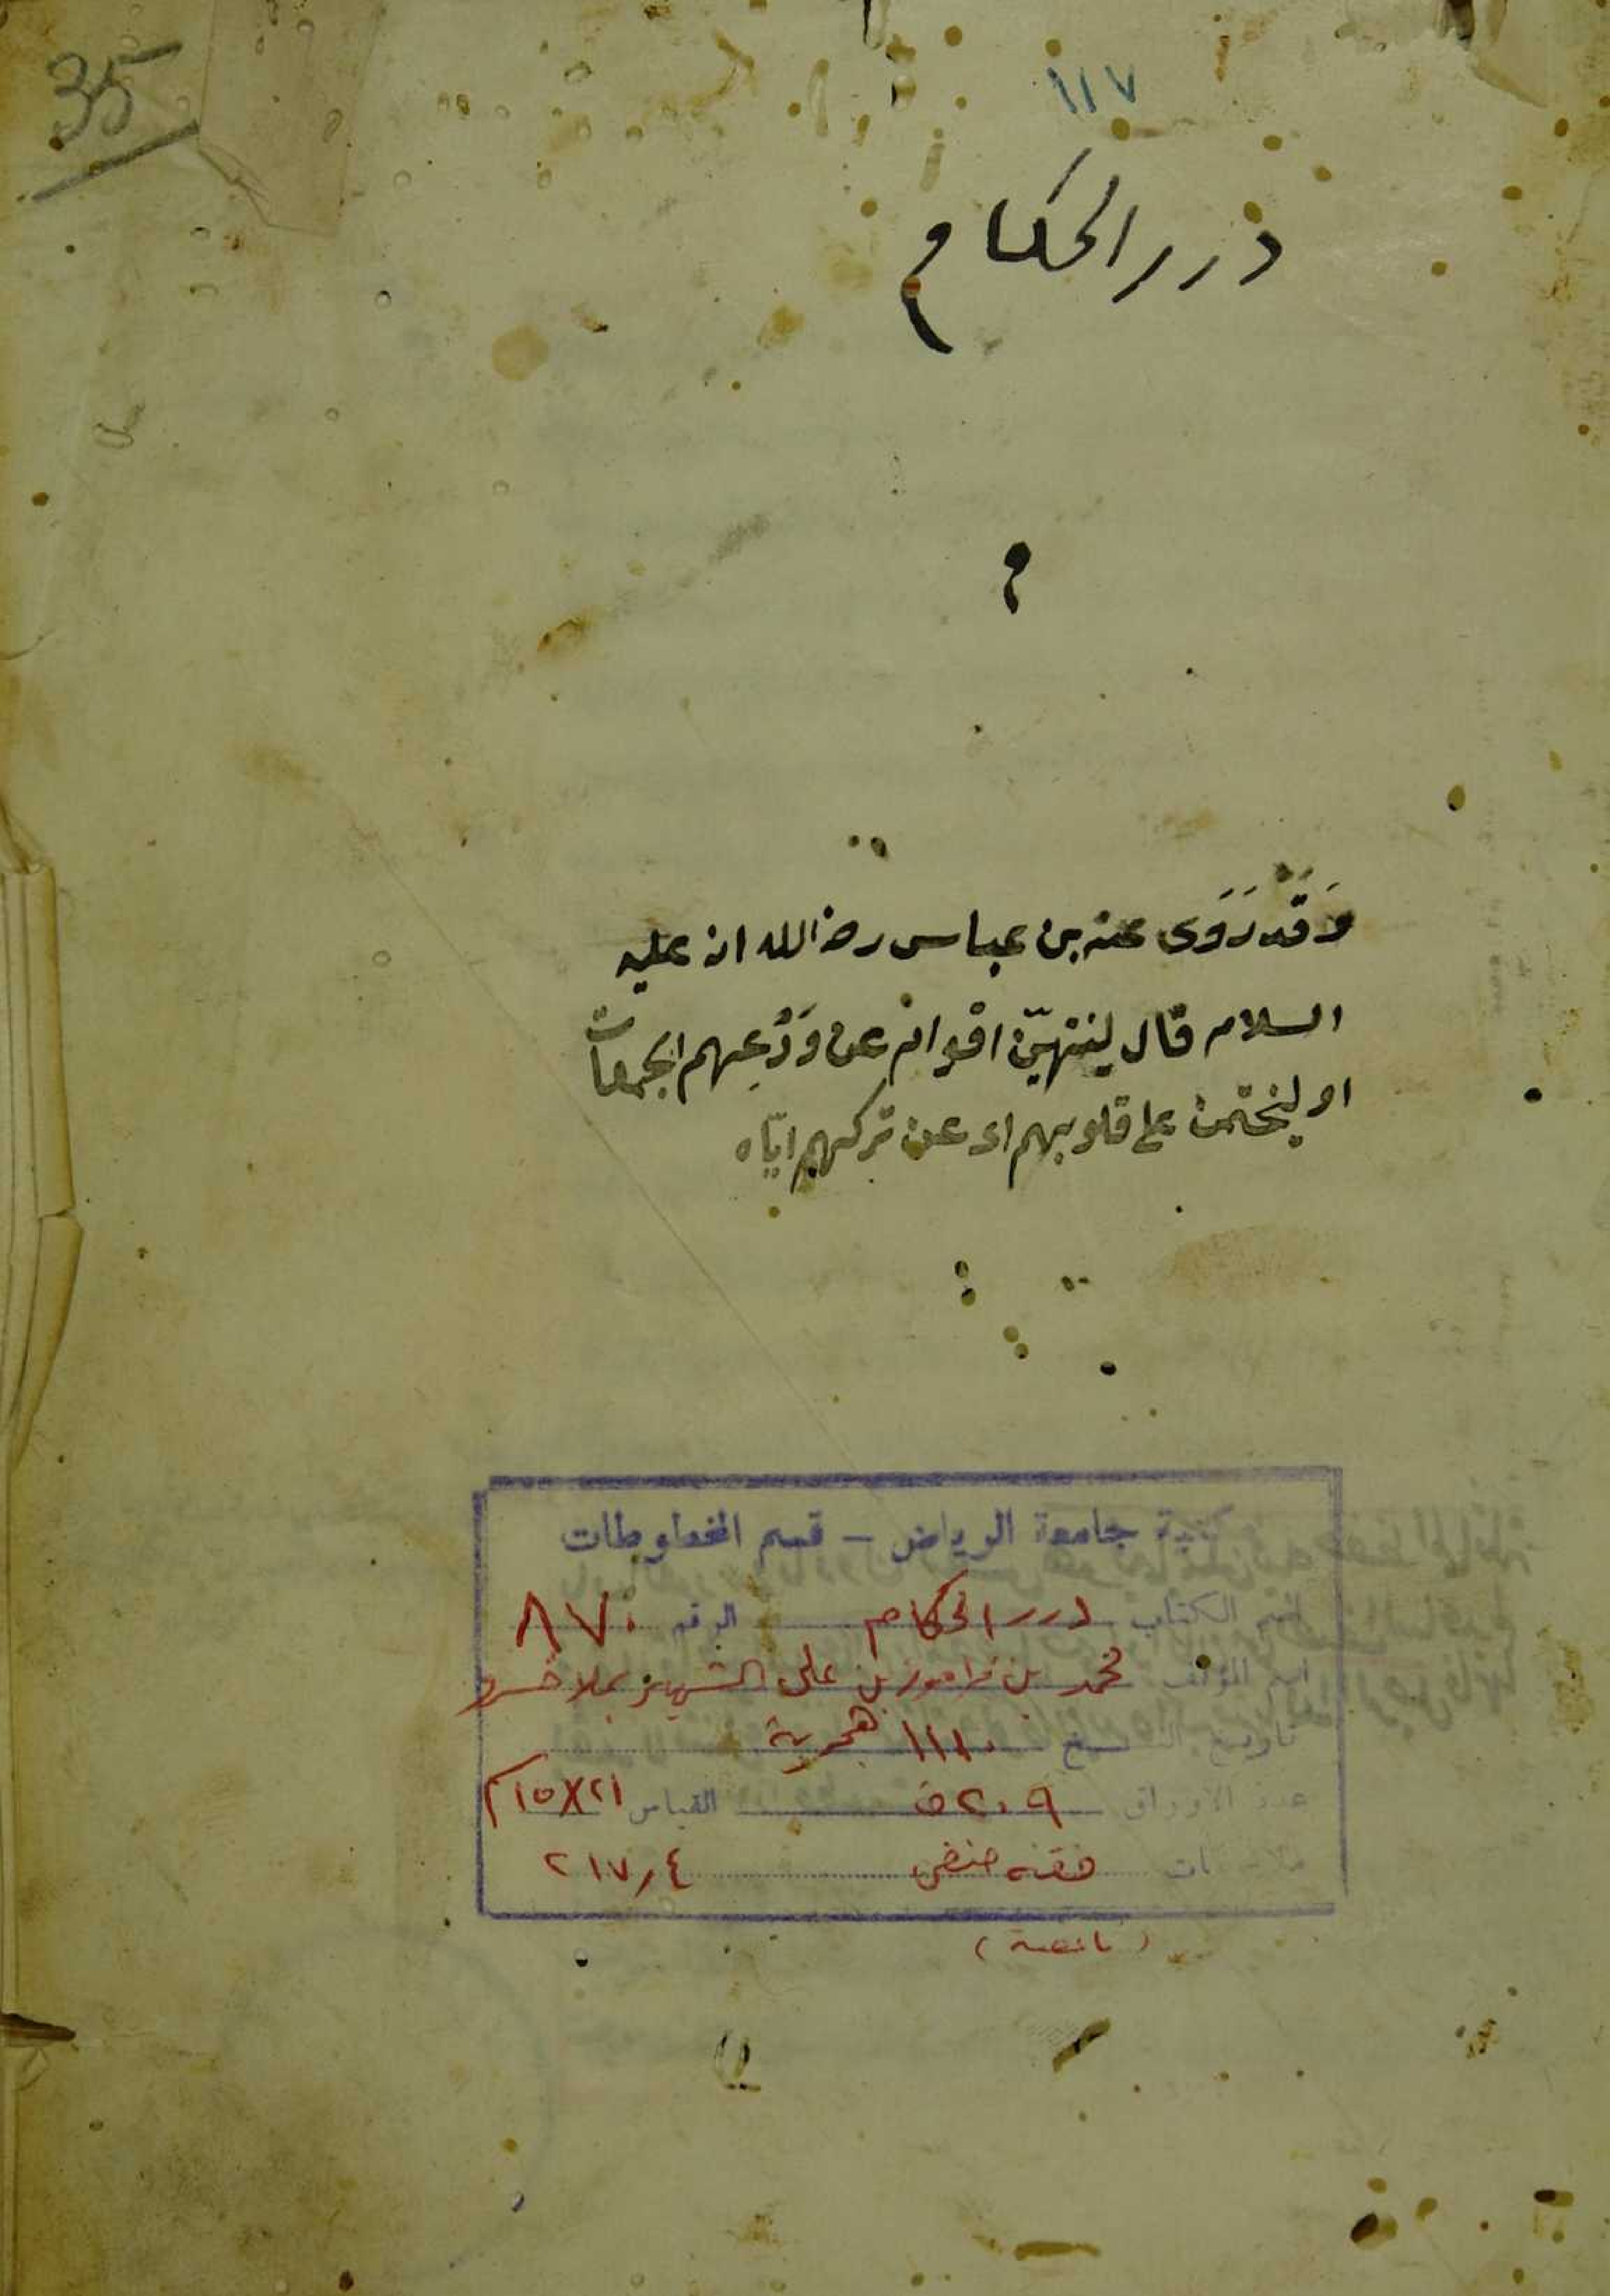 35
١١٧
درر الحكام
م
وَقَدْ رَوَى عنه بن عباس رضى الله ان عليه
السلام قال لينتهيّن اقوام عن وَدْعِهم الجمعات
او ليختمن على قلوبهم اى عن تركهم ايّاه
مكتبة جامعة الرياض - قسم المخطوطات
اسم الكتاب درر الحكام الرقم ٨٧٠
اسم المؤلف محمد بن فرامورز بن على الشهير بملا خسرو
تاريخ النسخ ١١١٠ هجرية
عدد الاوراق ٢٠٩ ق القياس ٢١×١٥ م
ملاحظات فقه حنفى ٢١٧٫٤
(ناقصة)